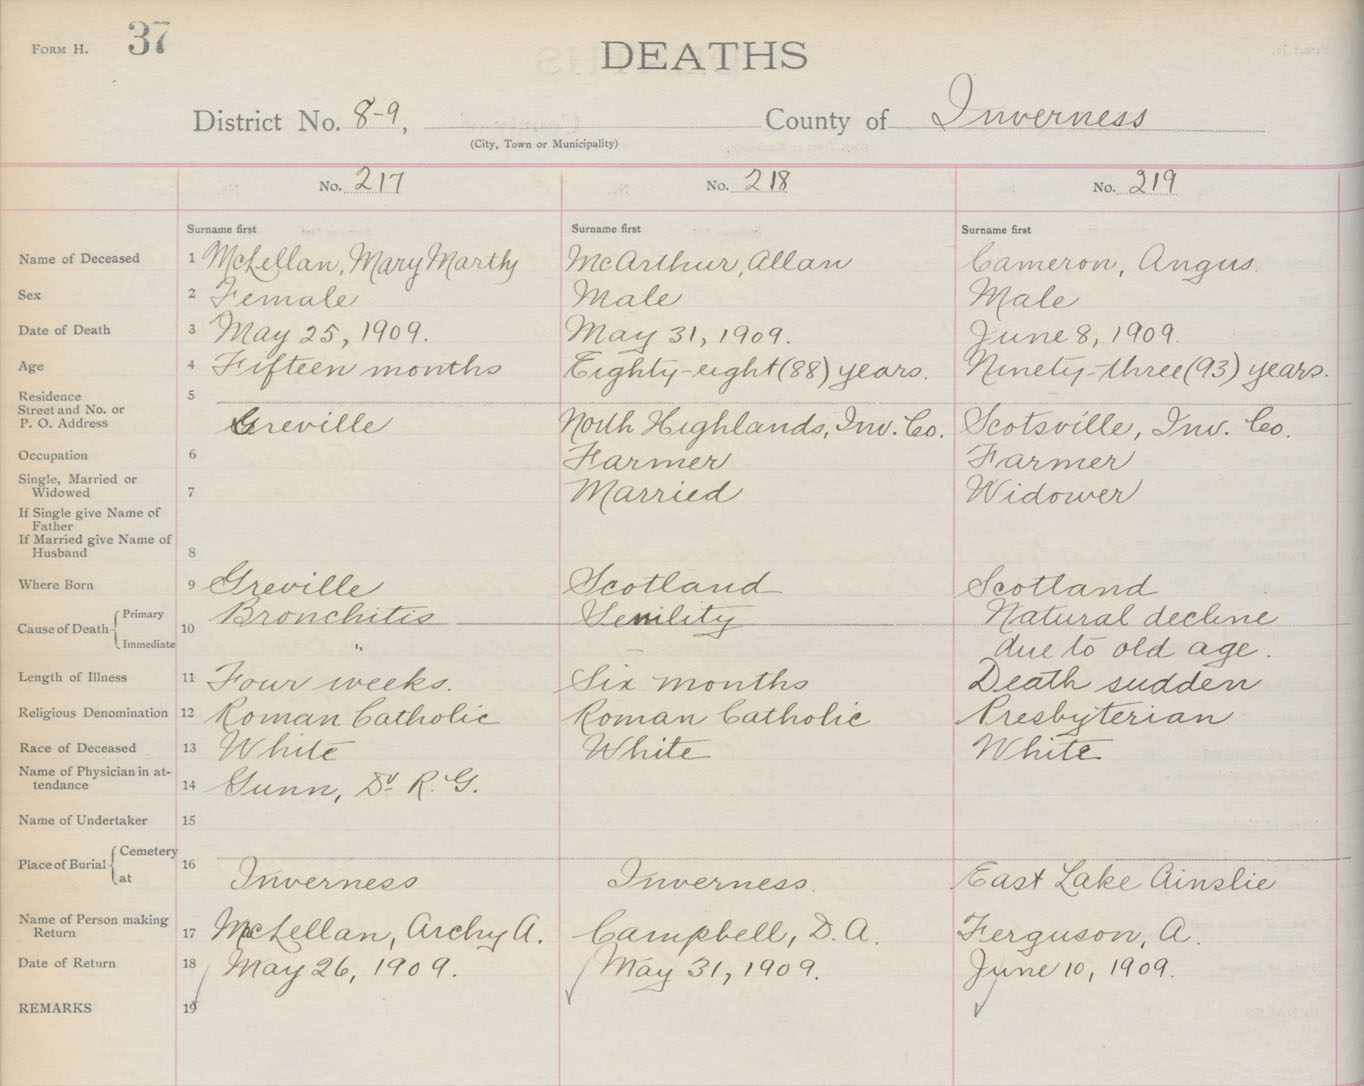 FORM H. 37
DEATHS
District No. 8-9, County of Inverness
(City, Town or Municipality)
No. 217 No. 218 No. 219
Surname first Surname first Surname first
Name of Deceased 1 McLellan, Mary Marthy McArthur, Allan Cameron, Angus.
Sex 2 Female Male Male
Date of Death 3 May 25, 1909. May 31, 1909. June 8, 1909.
Age 4 Fifteen months Eighty-eight (88) years. Ninety-three (93) years.
Residence 5
Street and No. or
P. O. Address Greville North Highlands, Inv. Co. Scotsville, Inv. Co.
Occupation 6 Farmer Farmer
Single, Married or
Widowed 7 Married Widower
If Single give Name of
Father
If Married give Name of
Husband 8
Where Born 9 Greville Scotland Scotland
Cause of Death 10 Primary Bronchitis Senility Natural decline
Immediate " due to old age.
Length of Illness 11 Four weeks. Six months Death sudden
Religious Denomination 12 Roman Catholic Roman Catholic Presbyterian
Race of Deceased 13 White White White
Name of Physician in at-
tendance 14 Gunn, Dr. R. G.
Name of Undertaker 15
Place of Burial 16 Cemetery
at Inverness Inverness. East Lake Ainslie
Name of Person making
Return 17 McLellan, Archy A. Campbell, D. A. Ferguson, A.
Date of Return 18 May 26, 1909. May 31, 1909. June 10, 1909.
REMARKS 19